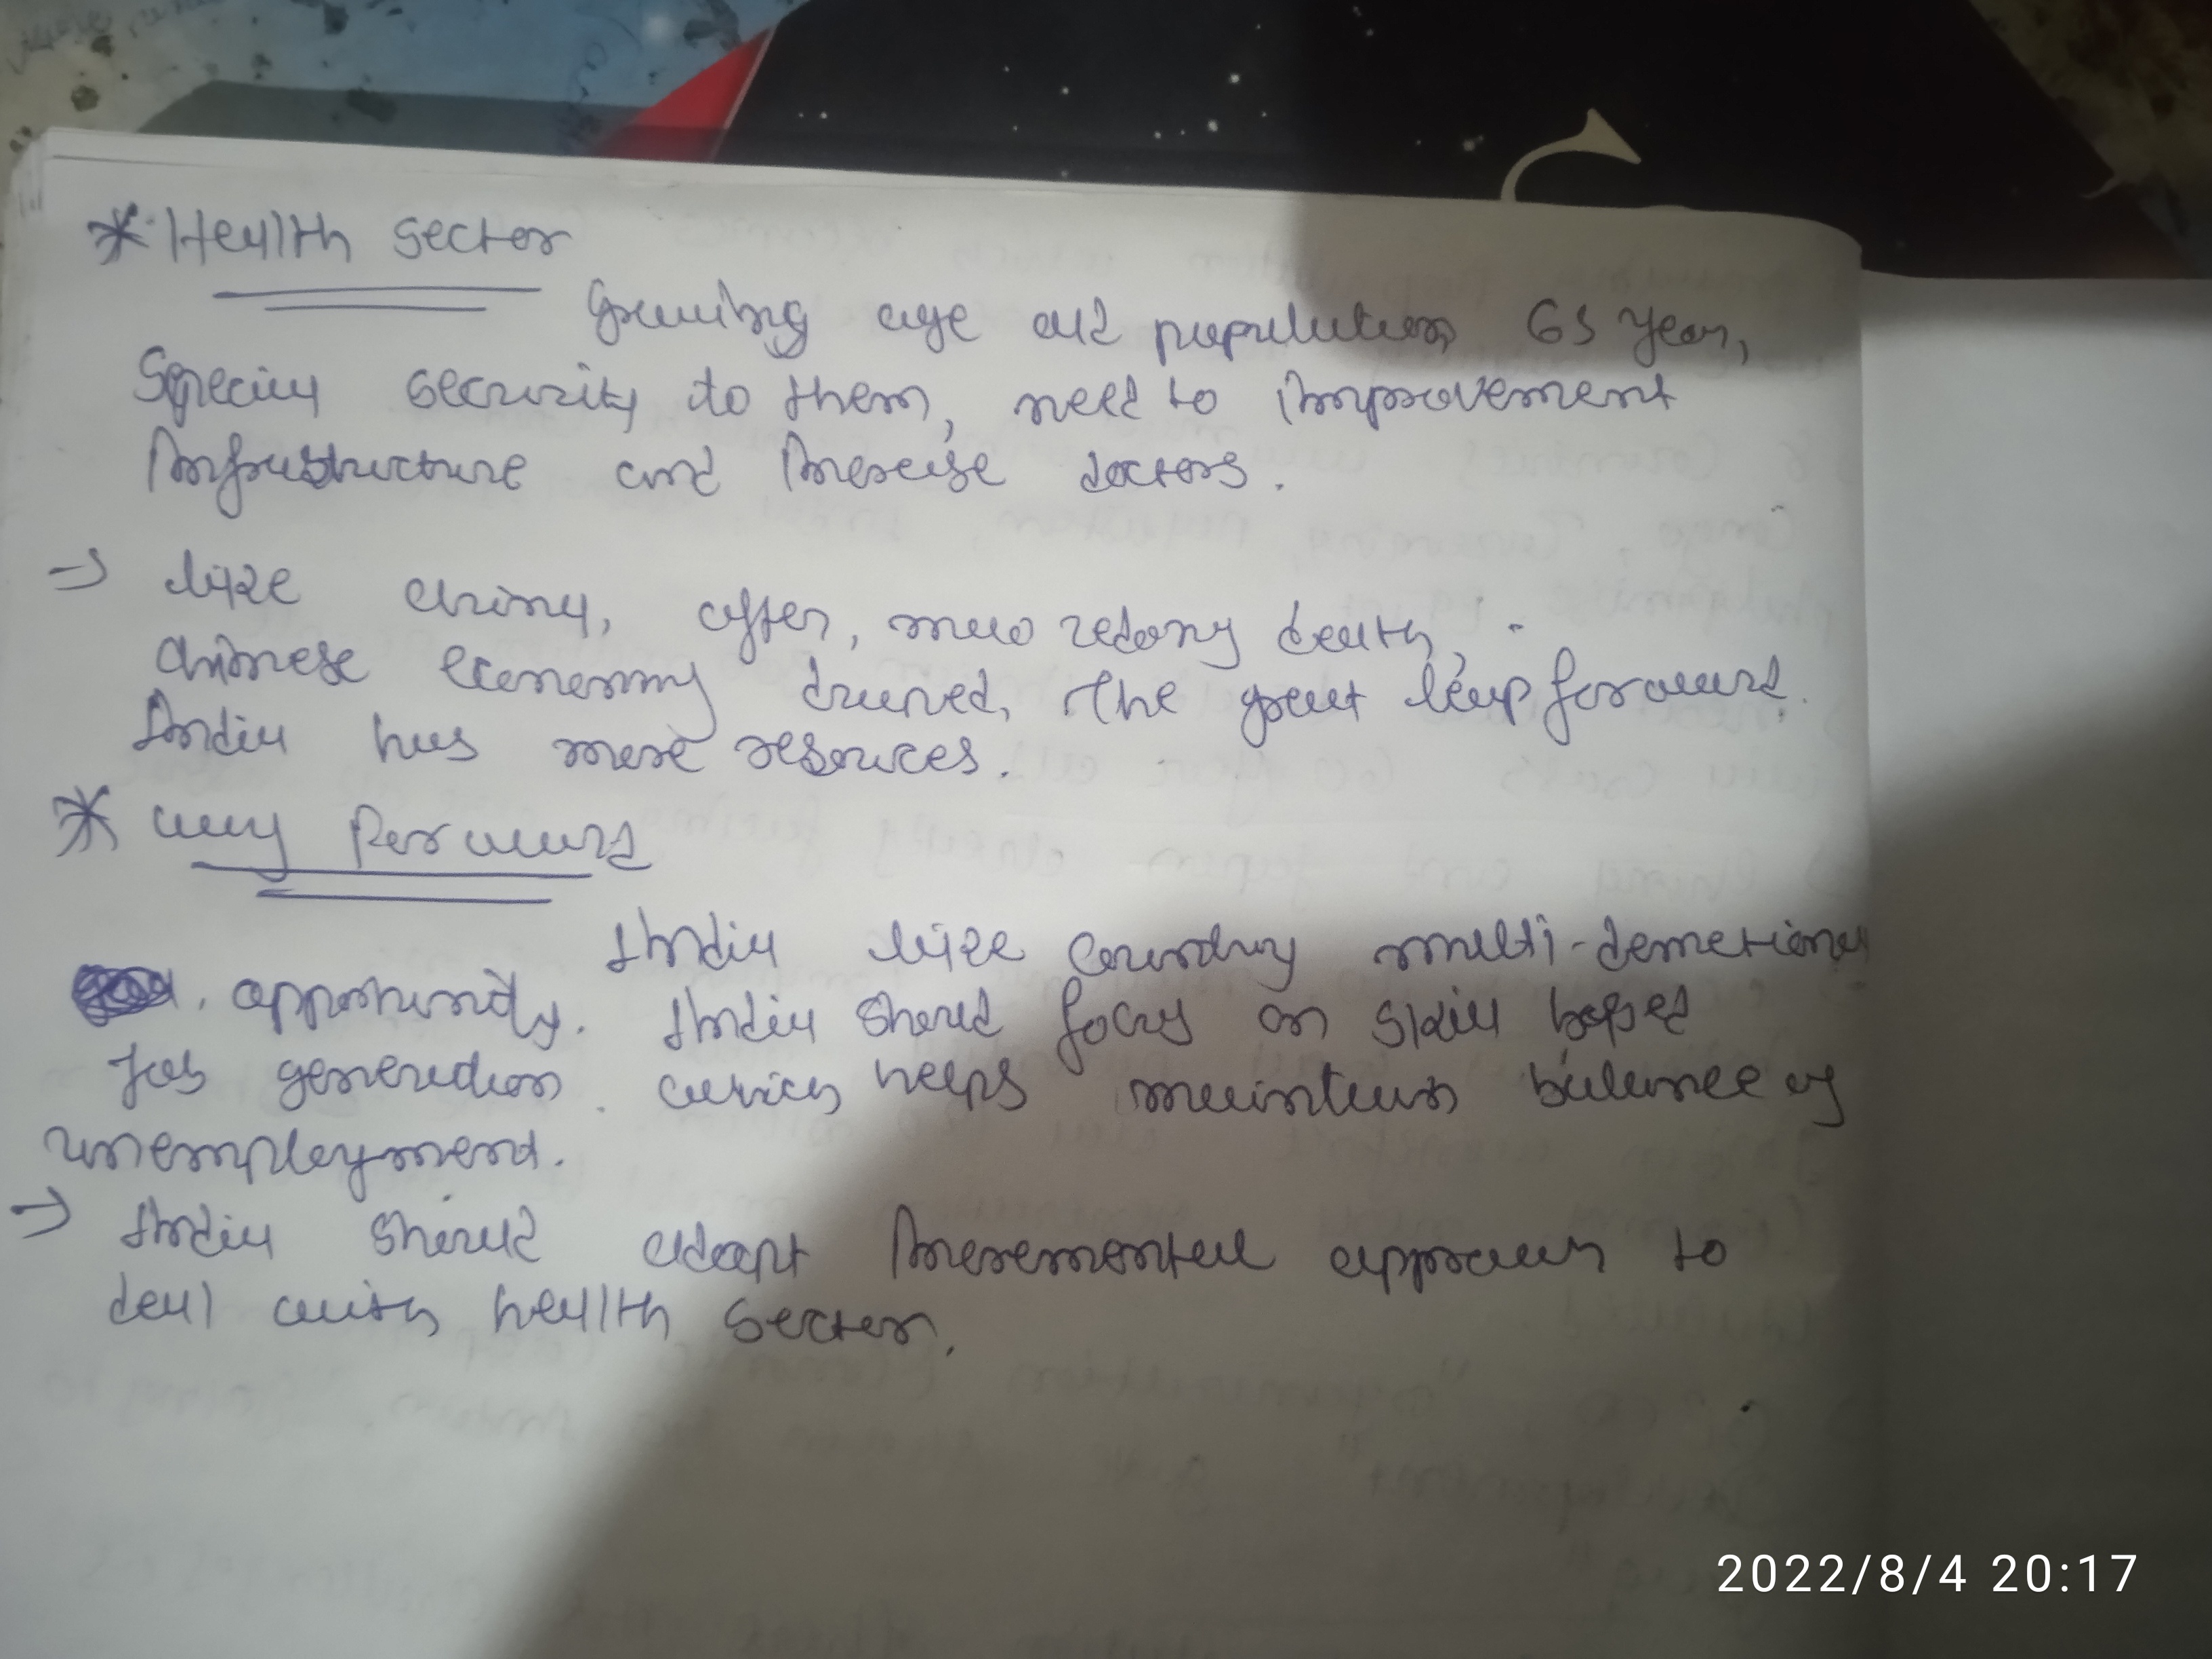 * Health sector
Growing age old population 65 year,
Special security to them, need to improvement
Infrastructure and Increase doctors.
→ like china, after, mao zedong death,
Chinese economy The great leap forward.
India has more resources.
* way forward
India like country multi-
opportunity. India should focus on skill based
Job generation. which helps maintain balance of
unemployment.
→ India should adopt Incremental approach to
deal with health sector.
2022/8/4 20:17